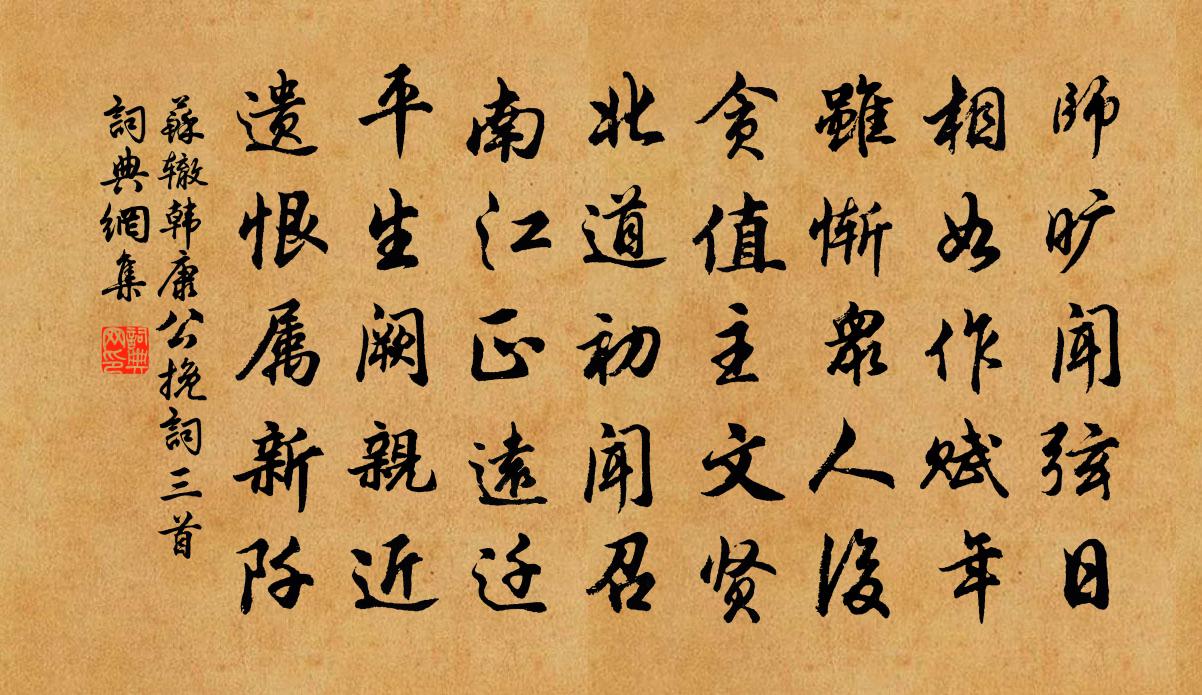 师旷闻弦日
相如作赋年
雖惭衆人後
贪值主文贤
北道初闻召
南江正遠迁
平生阙親近
遗恨属新阡
蘇辙韩康公挽詞三首
詞典網集
詞典网印